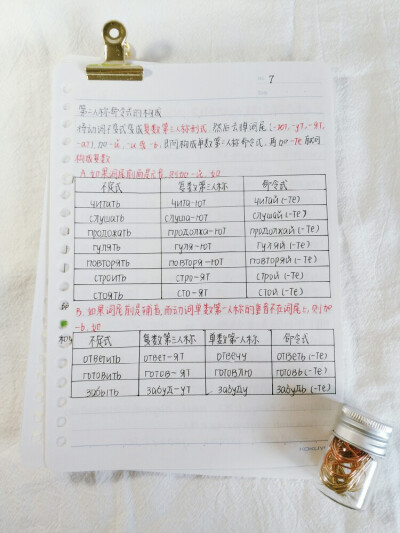 7
第二人称命令式的构成
将动词不定式变成复数第三人称形式,然后去掉词尾(-ют, -ут, -ят,
-ат)加-й, -и或-ь,即可构成单数第二人称命令式,再加-те就可
构成复数
A. 如果词尾前面是元音,则加-й,如
不定式 复数第三人称 命令式
читать чита-ют читай(-те)
слушать слуша-ют слушай(-те)
продожать продолжа-ют продолжай(-те)
гулять гуля-ют гуляй(-те)
повторять повторя-ют повторяй(-те)
строить стро-ят строй(-те)
стоять сто-ят стой(-те)
B. 如果词尾前是辅音,而动词单数第一人称的重音不在词尾上,则加
-ь,如
不定式 复数第三人称 单数第一人称 命令式
ответить ответ-ят отвечу ответь(-те)
готовить готов-ят готовлю готовь(-те)
забыть забуд-ут забуду забудь(-те)
KOKUYO